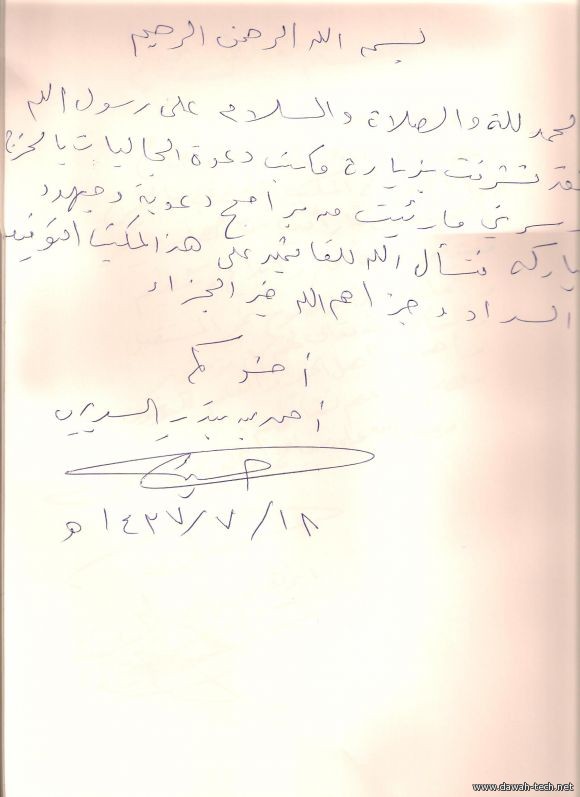 بسم الله الرحمن الرحيم
الحمد للة والصلاة والسلام على رسول الله
لقد تشرفت بزيارة مكتب دعوة الجاليات بالخرج
وسرني ما رئيت من برامج دعوية وجهود
مباركه فنسأل الله للقائمين على هذا المكتب التوفيق
والسداد وجزاهم الله خير الجزاء
أخوكم
أحمد بن
١٤٢٧/٧/١٨ هـ
www.dawah-tech.net